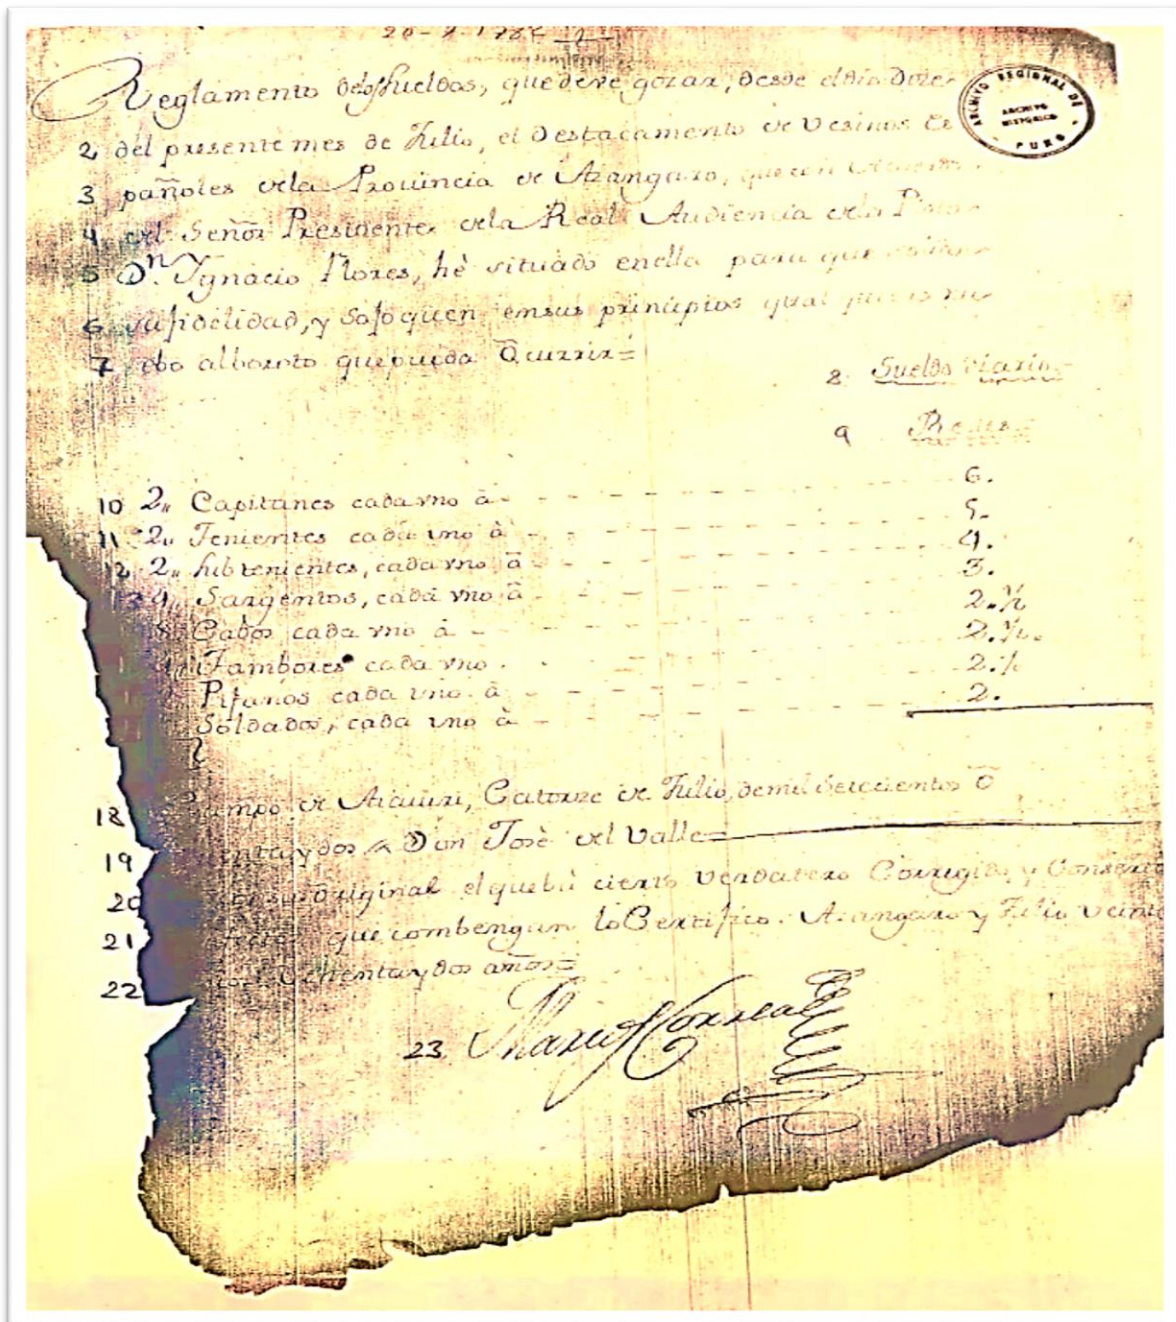 Reglamento delos Sueldos, que deve gozar, desde el dia
ARCHIVO REGIONAL DE PUNO
ARCHIVO HISTORICO
2 del presente mes de Julio, el Destacamento de Vesinos Es
3 pañoles dela Provincia de Azangaro, que con
4 del Señor Presidente dela Real Audiencia dela
5 Dn. Ygnacio Flores, hè situado enella para que
6 su fidelidad, y sofoquen ensus principios qual
7 alboroto que pueda
8 Sueldo diario
9
10 2,, Capitanes cada vno â - - - 6.
11 2,, Tenientes cada uno â - - - 5.
12 2,, Subtenientes, cada vno â - - - 4.
13 4,, Sargentos, cada vno â - - - 3.
8 Cabos cada vno â - - - 2.½
Tambores cada vno . - - - 2.½.
Pifanos cada uno â - - - 2.½
Soldados, cada uno â - - - 2.
18 Campo de Catorze de Julio, demil setecientos
19 entaydos Don Josè del Valle=
20 original el que bà cierto verdadero Corregido, y
21 que combengan lo Certifico. Azangaro y Julio veinte
22 ochentaydos años=
23